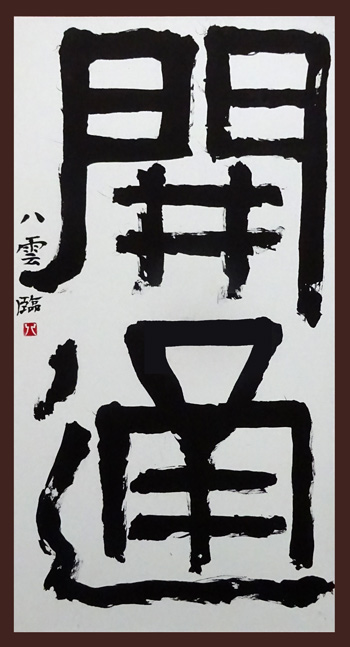 開通
八雲臨